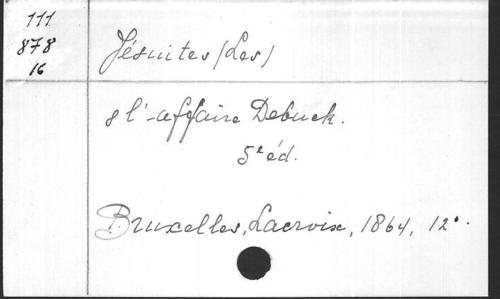 111
878
16
Jésuites (Les)
& l'affaire Debuck.
5e éd.
Bruxelles, Lacroix, 1864, 12°.